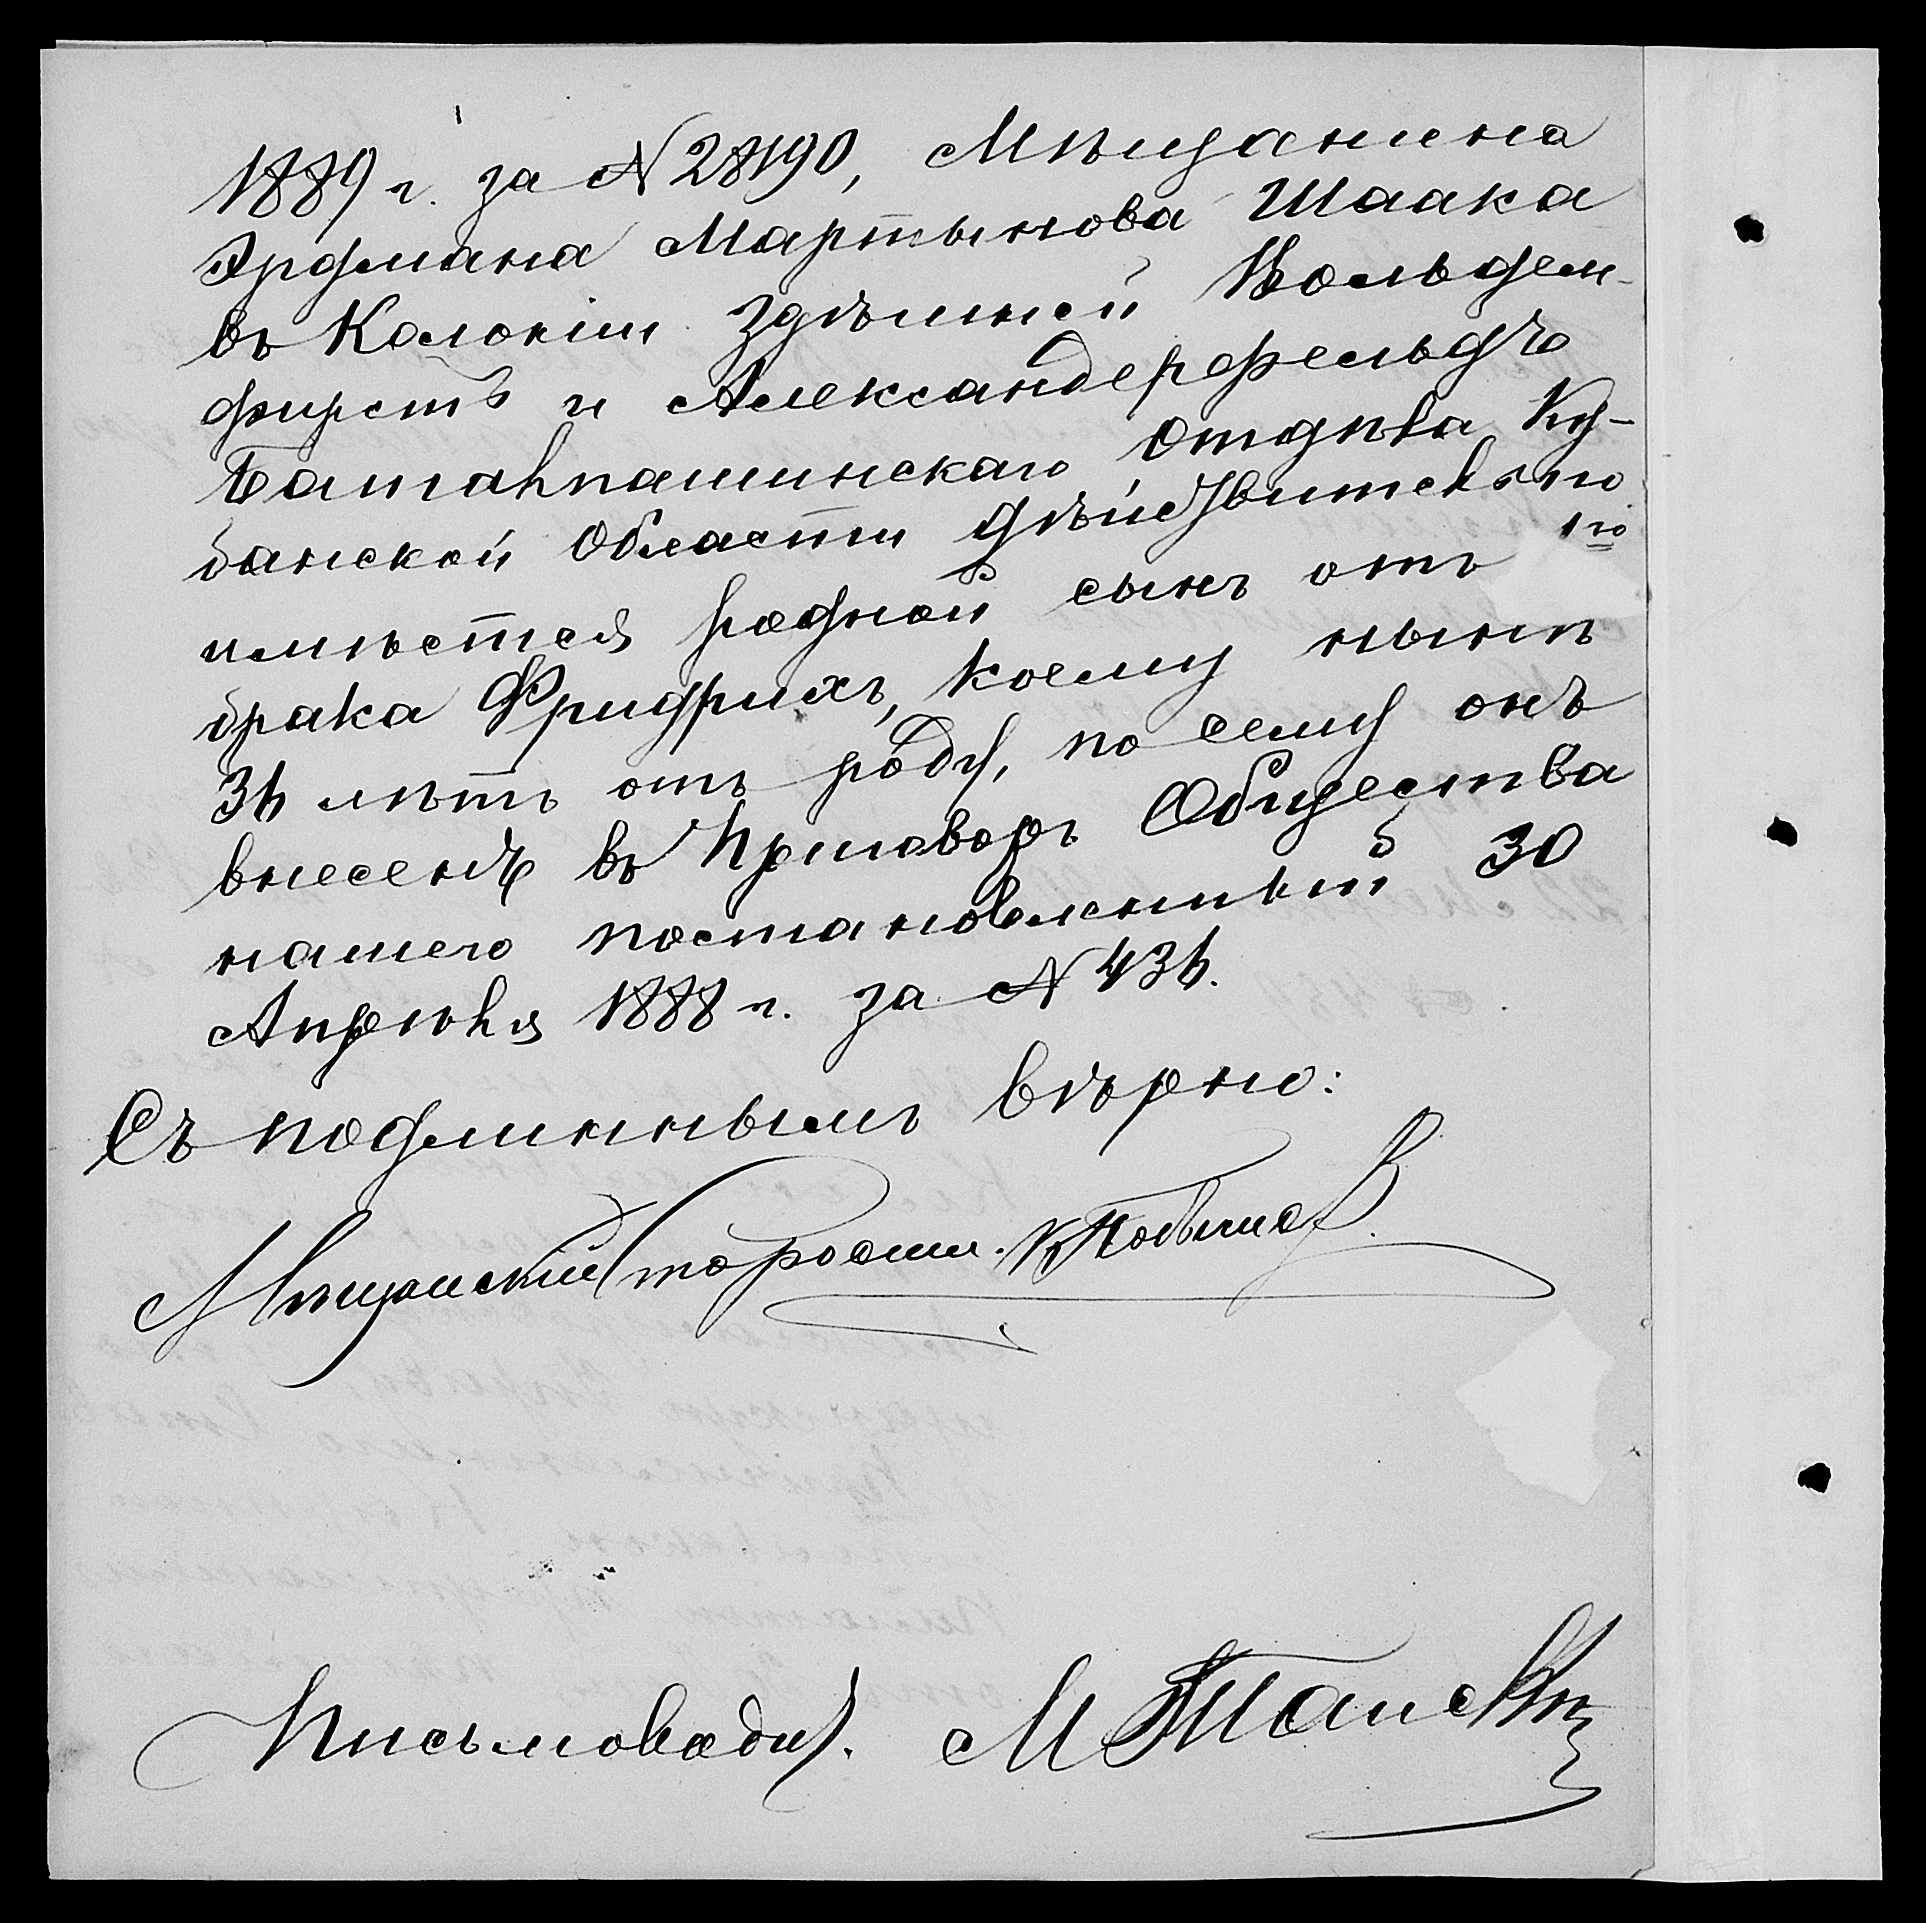 1889 г. за № 28190, Мѣщанина
Эрдмана Мартынова Шаака
въ Колоніи здѣшней Вольдем-
фирстъ и Александерфельдъ
Баталпашинскаго Отдѣла Ку-
банской Области дѣйствительно
имѣется родной сынъ отъ 1го
брака Фридрихъ, коему нынѣ
36 лѣтъ отъ роду, по сему онъ
внесенъ въ Приговоръ Общества
нашего постановленный 30
Апрѣля 1888 г. за № 436.
Съ подлиннымъ вѣрно:
Мѣщанскій Старости.
Письмовод.